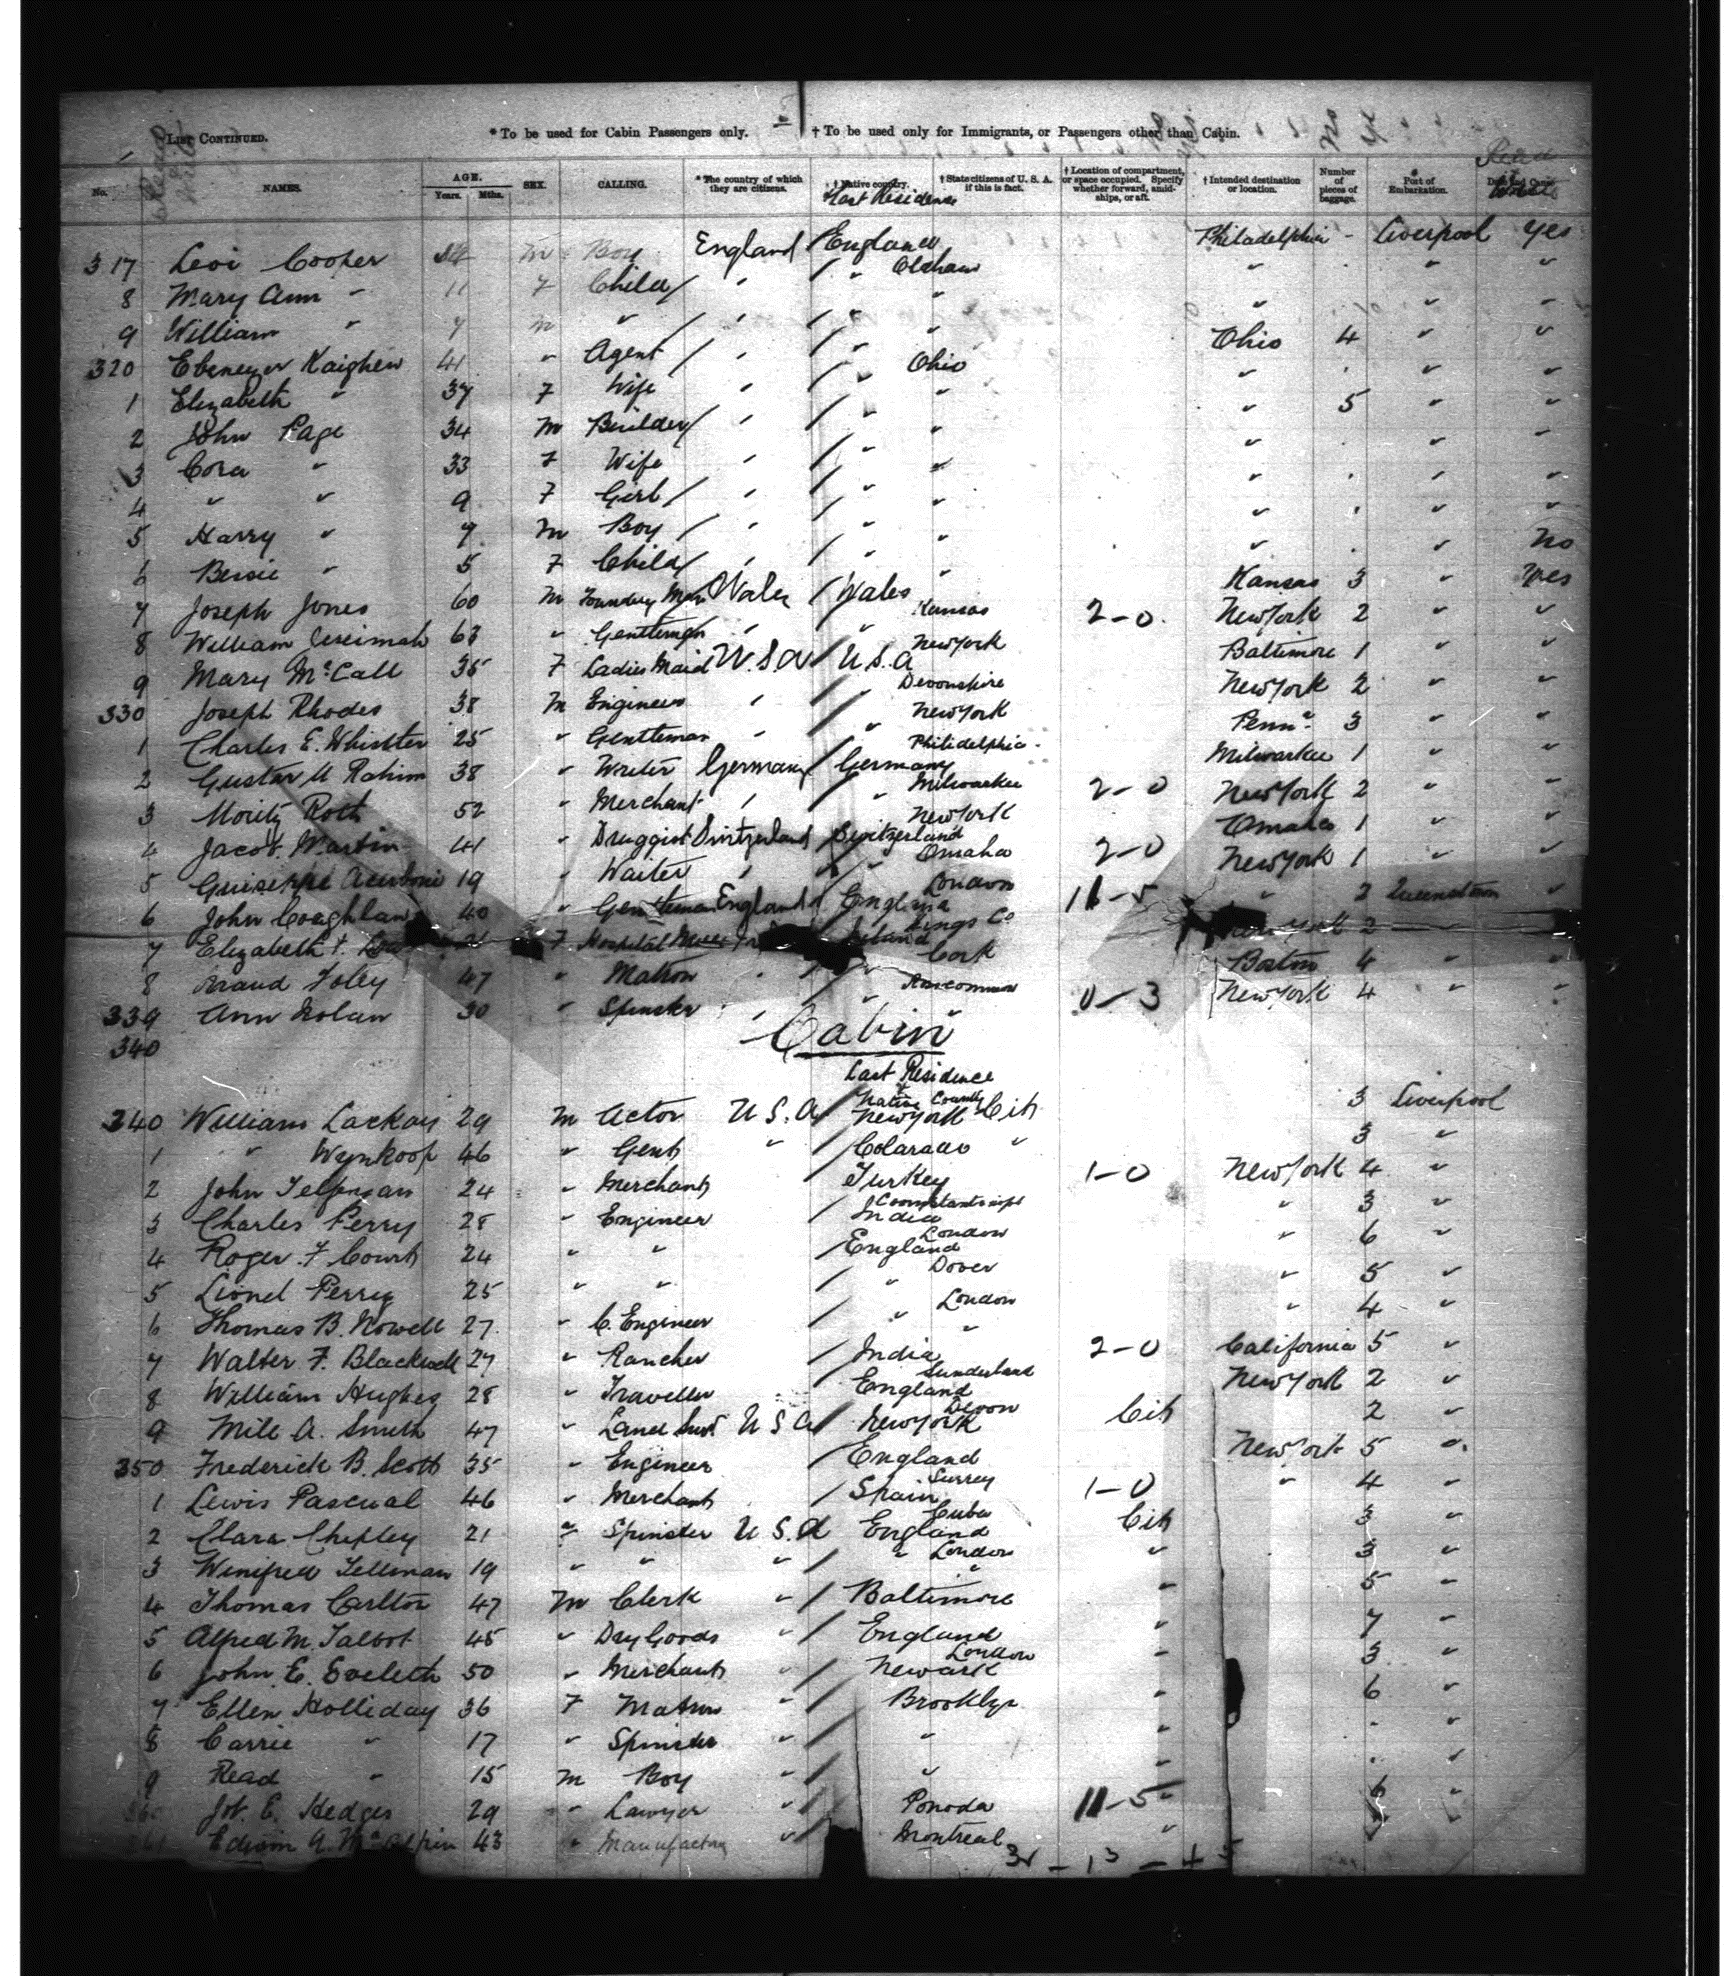 LIST CONTINUED. * To be used for Cabin Passengers only. † To be used only for Immigrants, or Passengers other than Cabin.
No. NAMES. AGE. Years. Mths. SEX. CALLING. * The country of which they are citizens. † Native country. Last Residence † State citizens of U. S. A. if this is fact. † Location of compartment, or space occupied. Specify whether forward, amidships, or aft. † Intended destination or location. Number of pieces of baggage. Port of Embarkation. Read
317 Levi Cooper m Boy England / England Oldham Philadelphia Liverpool Yes
8 Mary Ann " 11 F Child / " / " " " " "
9 William " 7 m " / " / " " " " "
320 Ebenezer Kaighen 41 " Agent / " / " Ohio Ohio 4 " "
1 Elizabeth " 37 F Wife " / " " " " "
2 John Page 34 m Builder / " / " " " 5 " "
3 Cora " 33 F Wife " / " " " " "
4 " " 9 F Girl / " / " " " " "
5 Harry " 7 m Boy / " / " " " " "
6 Bessie " 5 F Child / " / " " " " No
7 Joseph Jones 60 m Foundry Man Wales / Wales Kansas Kansas 3 " Yes
8 William Jereimah 63 " Gentleman " / " New York 2-0 New York 2 " "
9 Mary McCall 35 F Ladies Maid U.S.A / U.S.A Devonshire Baltimore 1 " "
330 Joseph Rhodes 38 m Engineer " / " New York New York 2 " "
1 Charles E. Whistler 25 " Gentleman " / " Philidelphia Penna 3 " "
2 Gustav U Rahim 38 " Writer Germany / Germany Milwaukee Milwaukee 1 " "
3 Moritz Roth 52 " Merchant " / " New York 2-0 New York 2 " "
4 Jacob Martin 41 " Druggist Switzerland / Switzerland Omaha Omaha 1 " "
5 Guiseppe 19 " Waiter " / " London 2-0 New York 1 " "
6 John Coughlan 40 " Gentleman England / England Kings Co 11-5 " 2 Queenstown "
7 Elizabeth F Hospital Cork New York 2
8 Foley 47 " Matron " / " Roscommon Boston 4 " "
339 Ann Nolan 30 " Spinster " / " " 0-3 New York 4 " "
340
Cabin
Last Residence
Native Country
340 William Lackay 29 m Actor U.S.A / New York Cit 3 Liverpool
1 " Wynkoop 46 " Gent " / Colarado " 3 "
2 John 24 " Merchant / Turkey Constantinopl 1-0 New York 4 "
3 Charles Perry 28 " Engineer / India London " 3 "
4 Roger F Court 24 " " / England Dover " 6 "
5 Lionel Perry 25 " " / " London " 5 "
6 Thomas B. Nowell 27 " C. Engineer / " " " 4 "
7 Walter F. Blackwell 27 " Rancher / India Sunderland 2-0 California 5 "
8 William Hughes 28 " Traveller / England Devon New York 2 "
9 Mill A. Smith 47 " Land Surv. U S A / New York Cit 2 "
350 Frederick B. Scott 35 " Engineer / England Surrey New York 5 "
1 Lewis Pascual 46 " Merchant / Spain Cuba 1-0 " 4 "
2 Clara Chipley 21 " Spinster U.S.A England London Cit 3 "
3 Winifred Tellman 19 " " " / " " " 3 "
4 Thomas Carlton 47 m Clerk " / Baltimore " 5 "
5 Alfred M. Talbot 45 " Dry Goods " / England London " 7 "
6 John E. Soeleth 50 " Merchant " / Newark " 3 "
7 Ellen Holliday 36 F Matron " / Brooklyn " 6 "
8 Carrie " 17 " Spinster " / " " "
9 Read " 15 m Boy " / " " "
360 Job. E. Hedges 29 " Lawyer " 11-5 " 6 "
361 Edwin A. McAlpin 43 " Manufactory " Montreal "